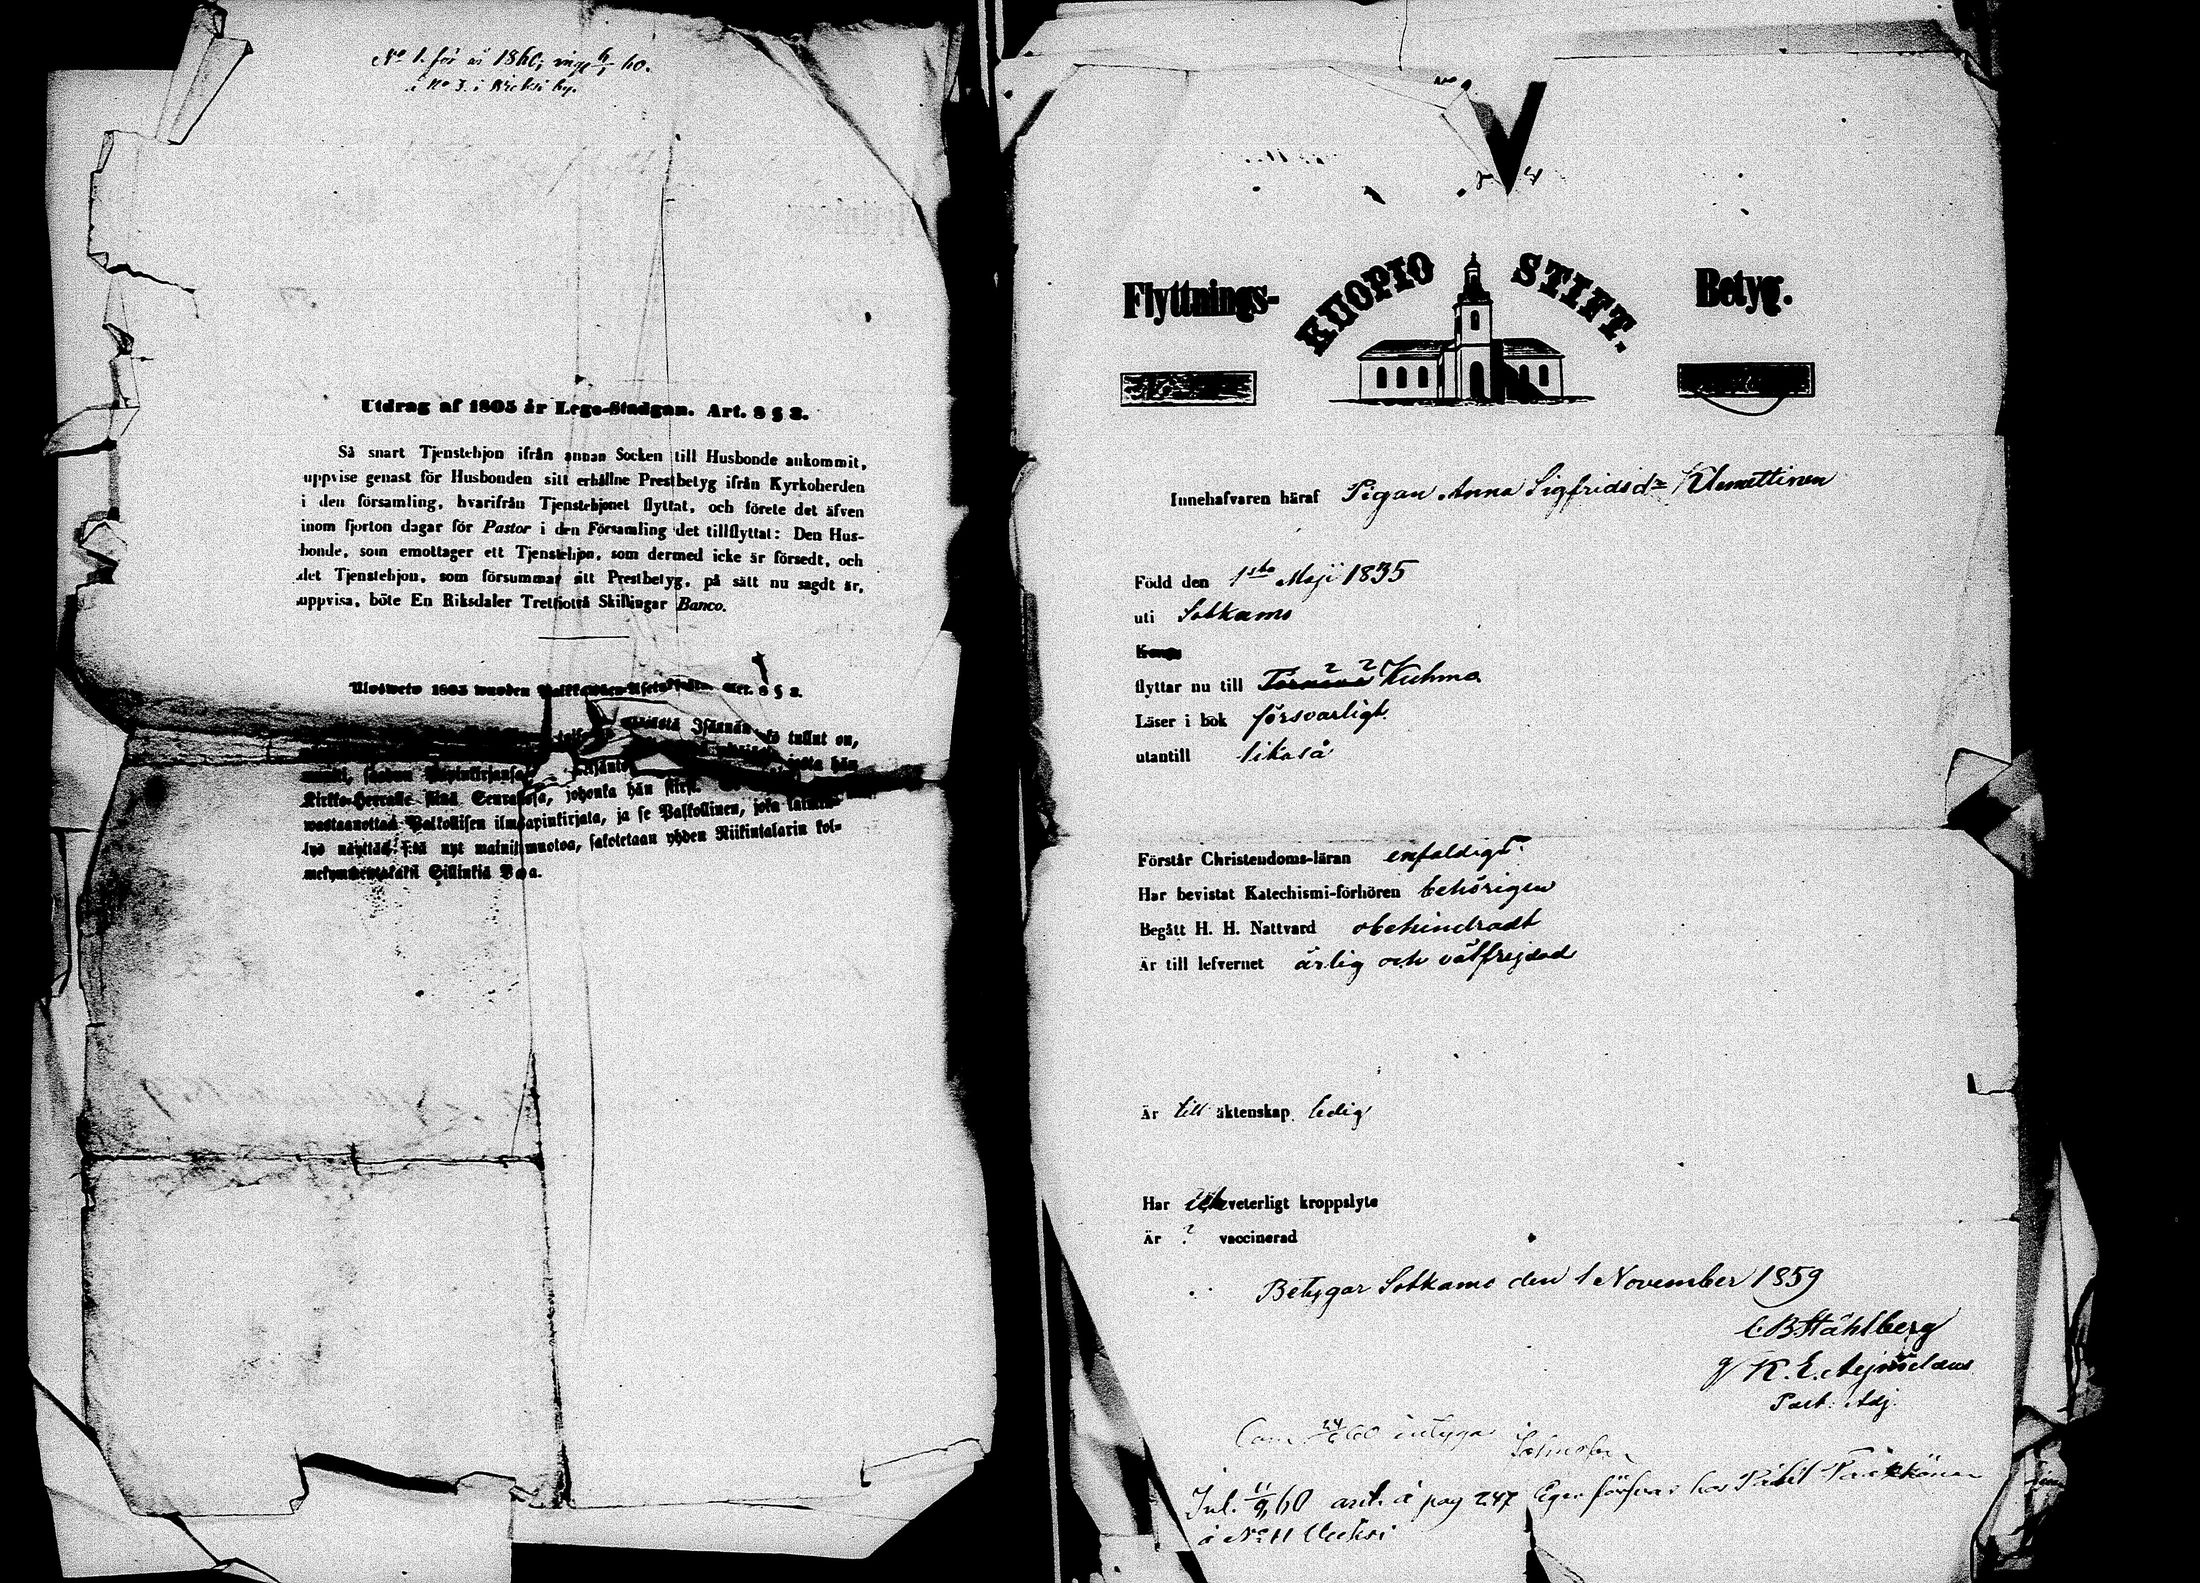 No 1. för år 1860, ing. 6/1 60.
i No 3. i Wieksi by.
Utdrag af 1805 år Lego-Stadgan. Art. 8 § 2.
Så snart Tjenstehjon ifrån annan Socken till Husbonde ankommit,
uppvise genast för Husbonden sitt erhållne Prestbetyg ifrån Kyrkoherden
i den församling, hvarifrån Tjenstehjonet flyttat, och förete det äfven
inom fjorton dagar för Pastor i den Församling det tillflyttat: Den Hus-
bonde, som emottager ett Tjenstehjon, som dermed icke är försedt, och
det Tjenstehjon, som försummar sitt Prestbetyg, på sätt nu sagdt är,
uppvisa, böte En Riksdaler Trettiotvå Skillingar Banco.
Ulosweto 1805 wuoden Palkkawäen Art. 8 § 2.
Isännän tullut on,
hän
Kirkko-Herralle siinä Seurakosa, johonka hän
wastaanottaa Palkollisen ilman papinkirjata, ja se Palkollinen, joka
näyttää sitä nyt mainittu muotoa, sakotetaan yhden Riikintalarin kol-
mekymmentäkaksi Sillinkiä B:oa.
Flyttnings- KUOPIO STIFT. Betyg.
Innehafvaren häraf Pigan Anna Sigfridsdr Klemettinen
Född den 1sta Maji 1835
uti Sotkamo
flyttar nu till Kuhmo
Läser i bok försvarligt
utantill likaså
Förstår Christendoms-läran enfaldigt
Har bevistat Katechismi-förhören behörigen
Begått H. H. Nattvard obehindradt
Är till lefvernet ärlig och välfrejdad
Är till äktenskap ledig
Har icke veterligt kroppslyte
Är ? vaccinerad
Betygar Sotkamo den 1 November 1859
C. B. Ståhlberg
g/ K. E.
Past. Adj.
60 intygar
Inl. 11/9 60 ant. å pag 247 Eget försvar hos Påhl
å No 11 Wieksi